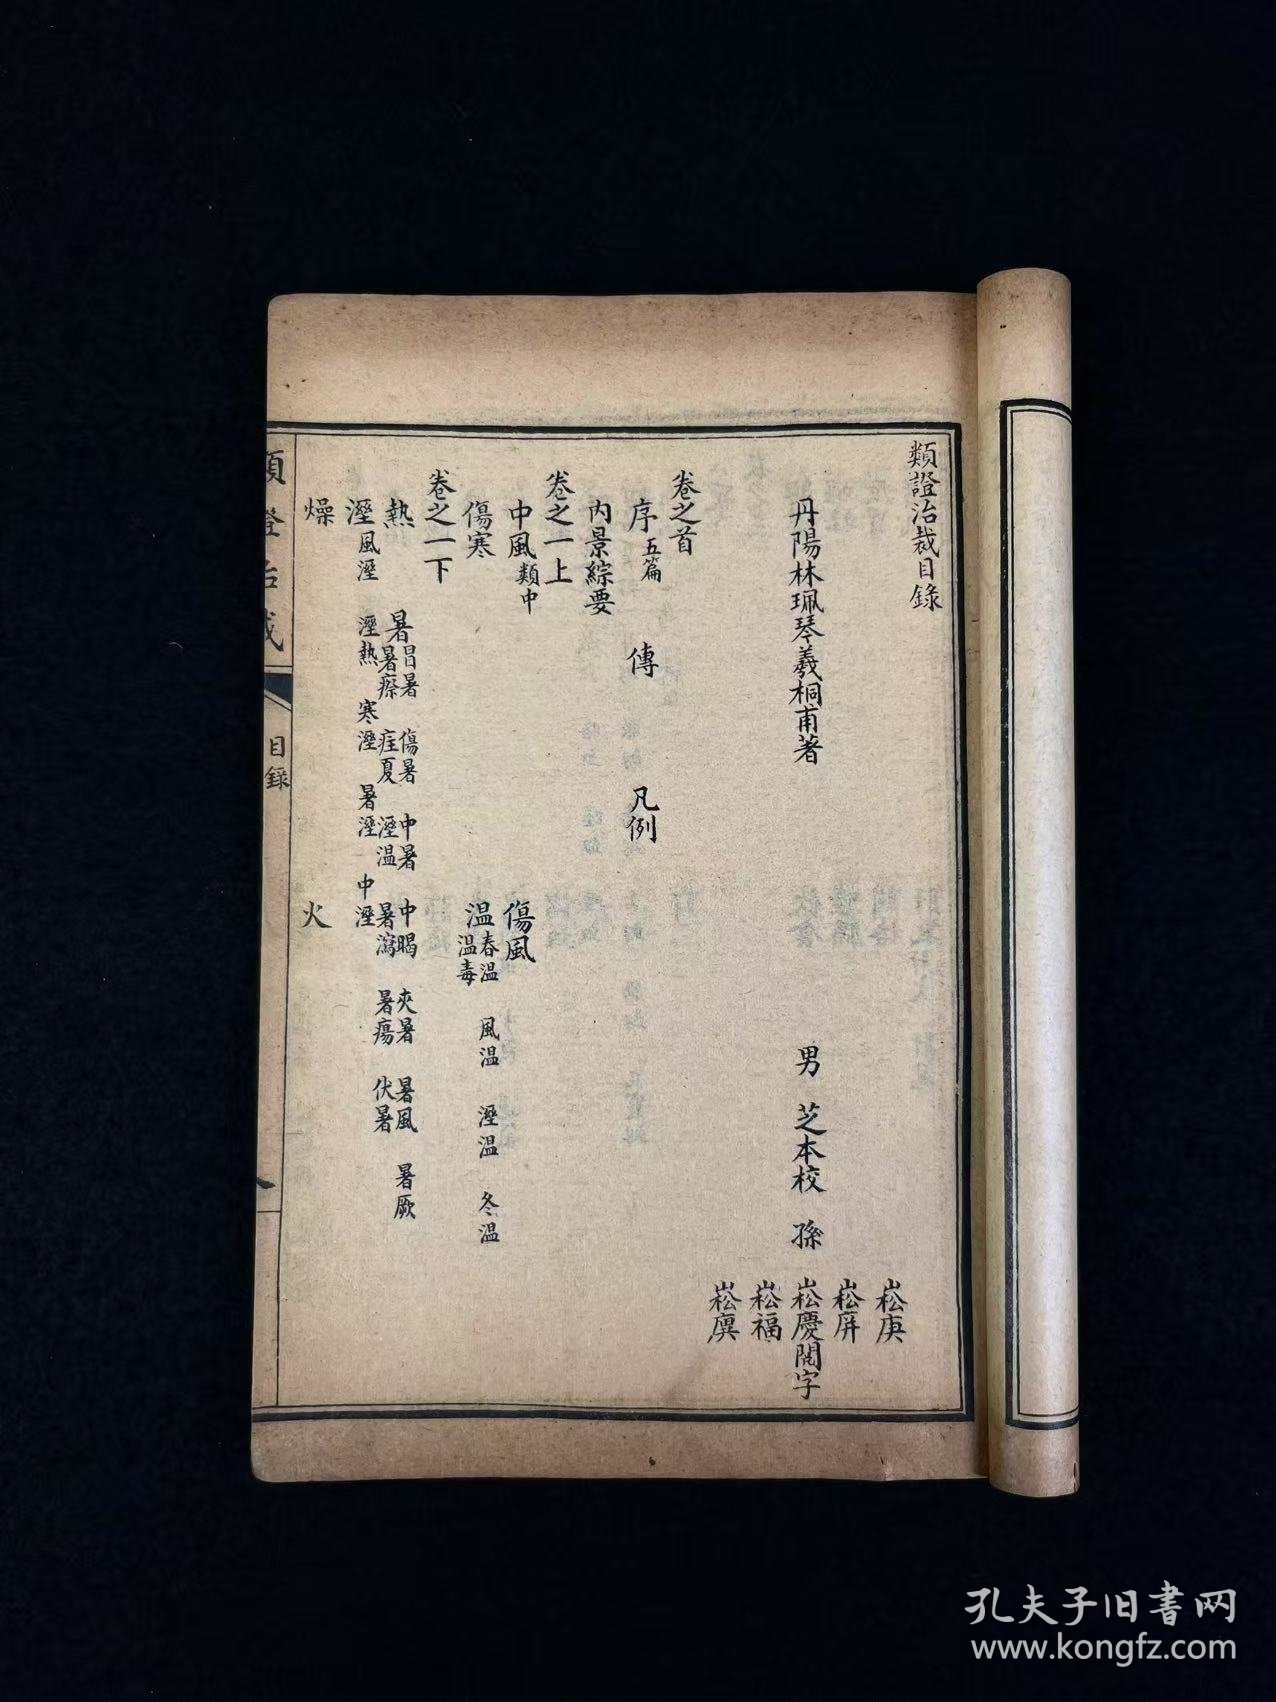 類證治裁目錄
丹陽林珮琴羲桐甫著 男 芝本校 孫
崧庚
崧屏
崧慶閱字
崧福
崧廙
卷之首
序五篇 傳 凡例
內景綜要
卷之一上
中風類中 傷風
傷寒 溫春溫 風溫 溼溫 冬溫 溫毒
卷之一下
熱 暑冒暑 傷暑 中暑 中暍 夾暑 暑風 暑厥 暑瘵 疰夏 溼溫 暑瀉 暑瘍 伏暑
溼風溼 溼熱 寒溼 暑溼 中溼
燥 火
類證治裁
目錄
一
孔夫子旧书网
www.kongfz.com